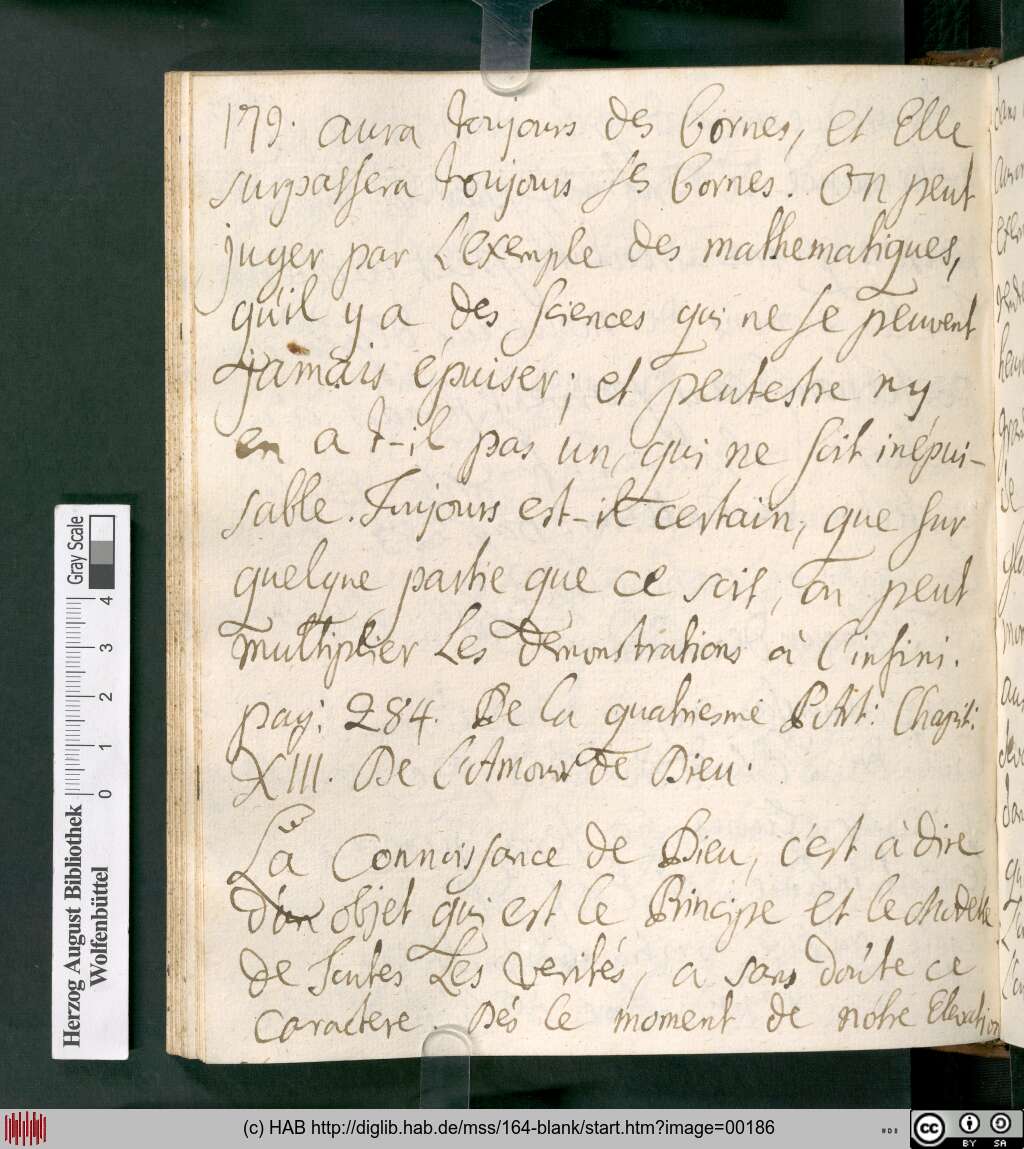 179. aura toujours des bornes, et Elle
surpassera toujours ses bornes. On peut
juger par L'exemple des mathematiques,
qu'il y a des sciences qui ne se peuvent
jamais épuiser; et peutestre n'y
en a t-il pas un, qui ne soit inépui-
sable. Toujours est-il certain, que sur
quelque partie que ce soit, on peut
multiplier Les Demonstrations à l'infini.
pag: 284. De la quatriesme Part: Chapit:
XIII. De L'Amour de Dieu.
La Connoissance de Dieu, c'est à dire
d'un objet qui est le Principe et le
de toutes Les verités, a sans doute ce
Caractere. Dés le moment de nôtre Elevation
Herzog August Bibliothek
Wolfenbüttel
Gray Scale
0 1 2 3 4
(c) HAB http://diglib.hab.de/mss/164-blank/start.htm?image=00186
cc BY SA